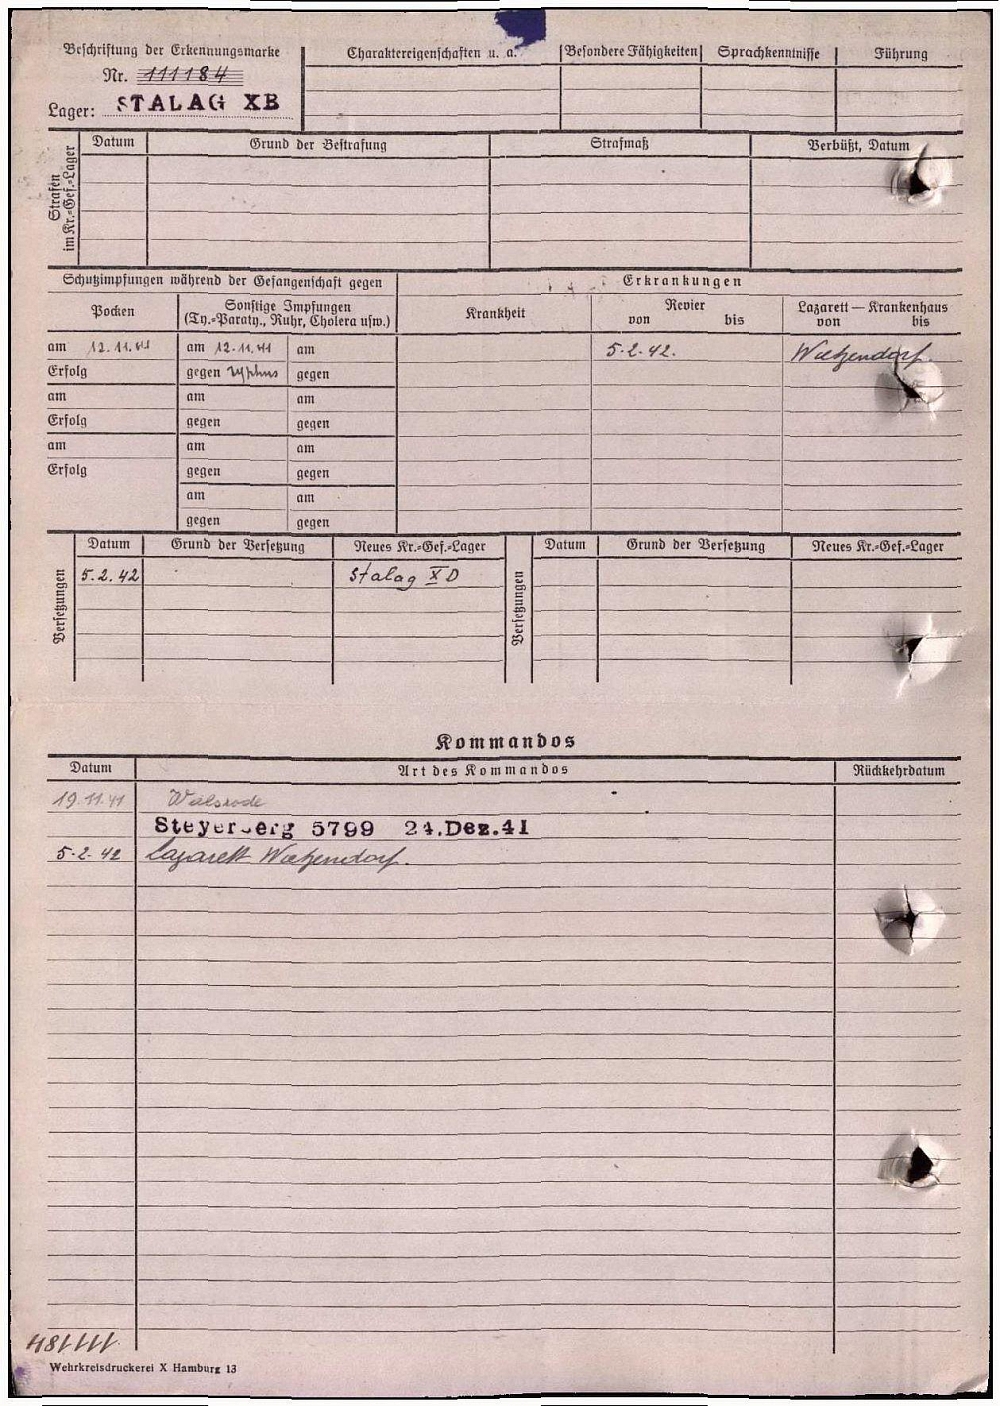 Beschriftung der Erkennungsmarke
Nr. 111184
Lager: STALAG XB
Charaktereigenschaften u. a.
Besondere Fähigkeiten
Sprachkenntnisse
Führung
Strafen im Kr.-Gef.-Lager
Datum
Grund der Bestrafung
Strafmaß
Verbüßt, Datum
Schutzimpfungen während der Gefangenschaft gegen
Erkrankungen
Pocken
Sonstige Impfungen
(Ty.-Paraty., Ruhr, Cholera usw.)
Krankheit
Revier
von bis
Lazarett — Krankenhaus
von bis
am 12.11.41 am 12.11.41 am 5.2.42. Wietzendorf.
Erfolg gegen Typhus gegen
am am am
Erfolg gegen gegen
am am am
Erfolg gegen gegen
am am
gegen gegen
Versetzungen
Datum Grund der Versetzung Neues Kr.-Gef.-Lager
5.2.42 Stalag XD
Versetzungen
Datum Grund der Versetzung Neues Kr.-Gef.-Lager
Kommandos
Datum Art des Kommandos Rückkehrdatum
19.11.41 Walsrode
Steyerberg 5799 24.Dez.41
5.2.42 Lazarett Wietzendorf.
111184
Wehrkreisdruckerei X Hamburg 13